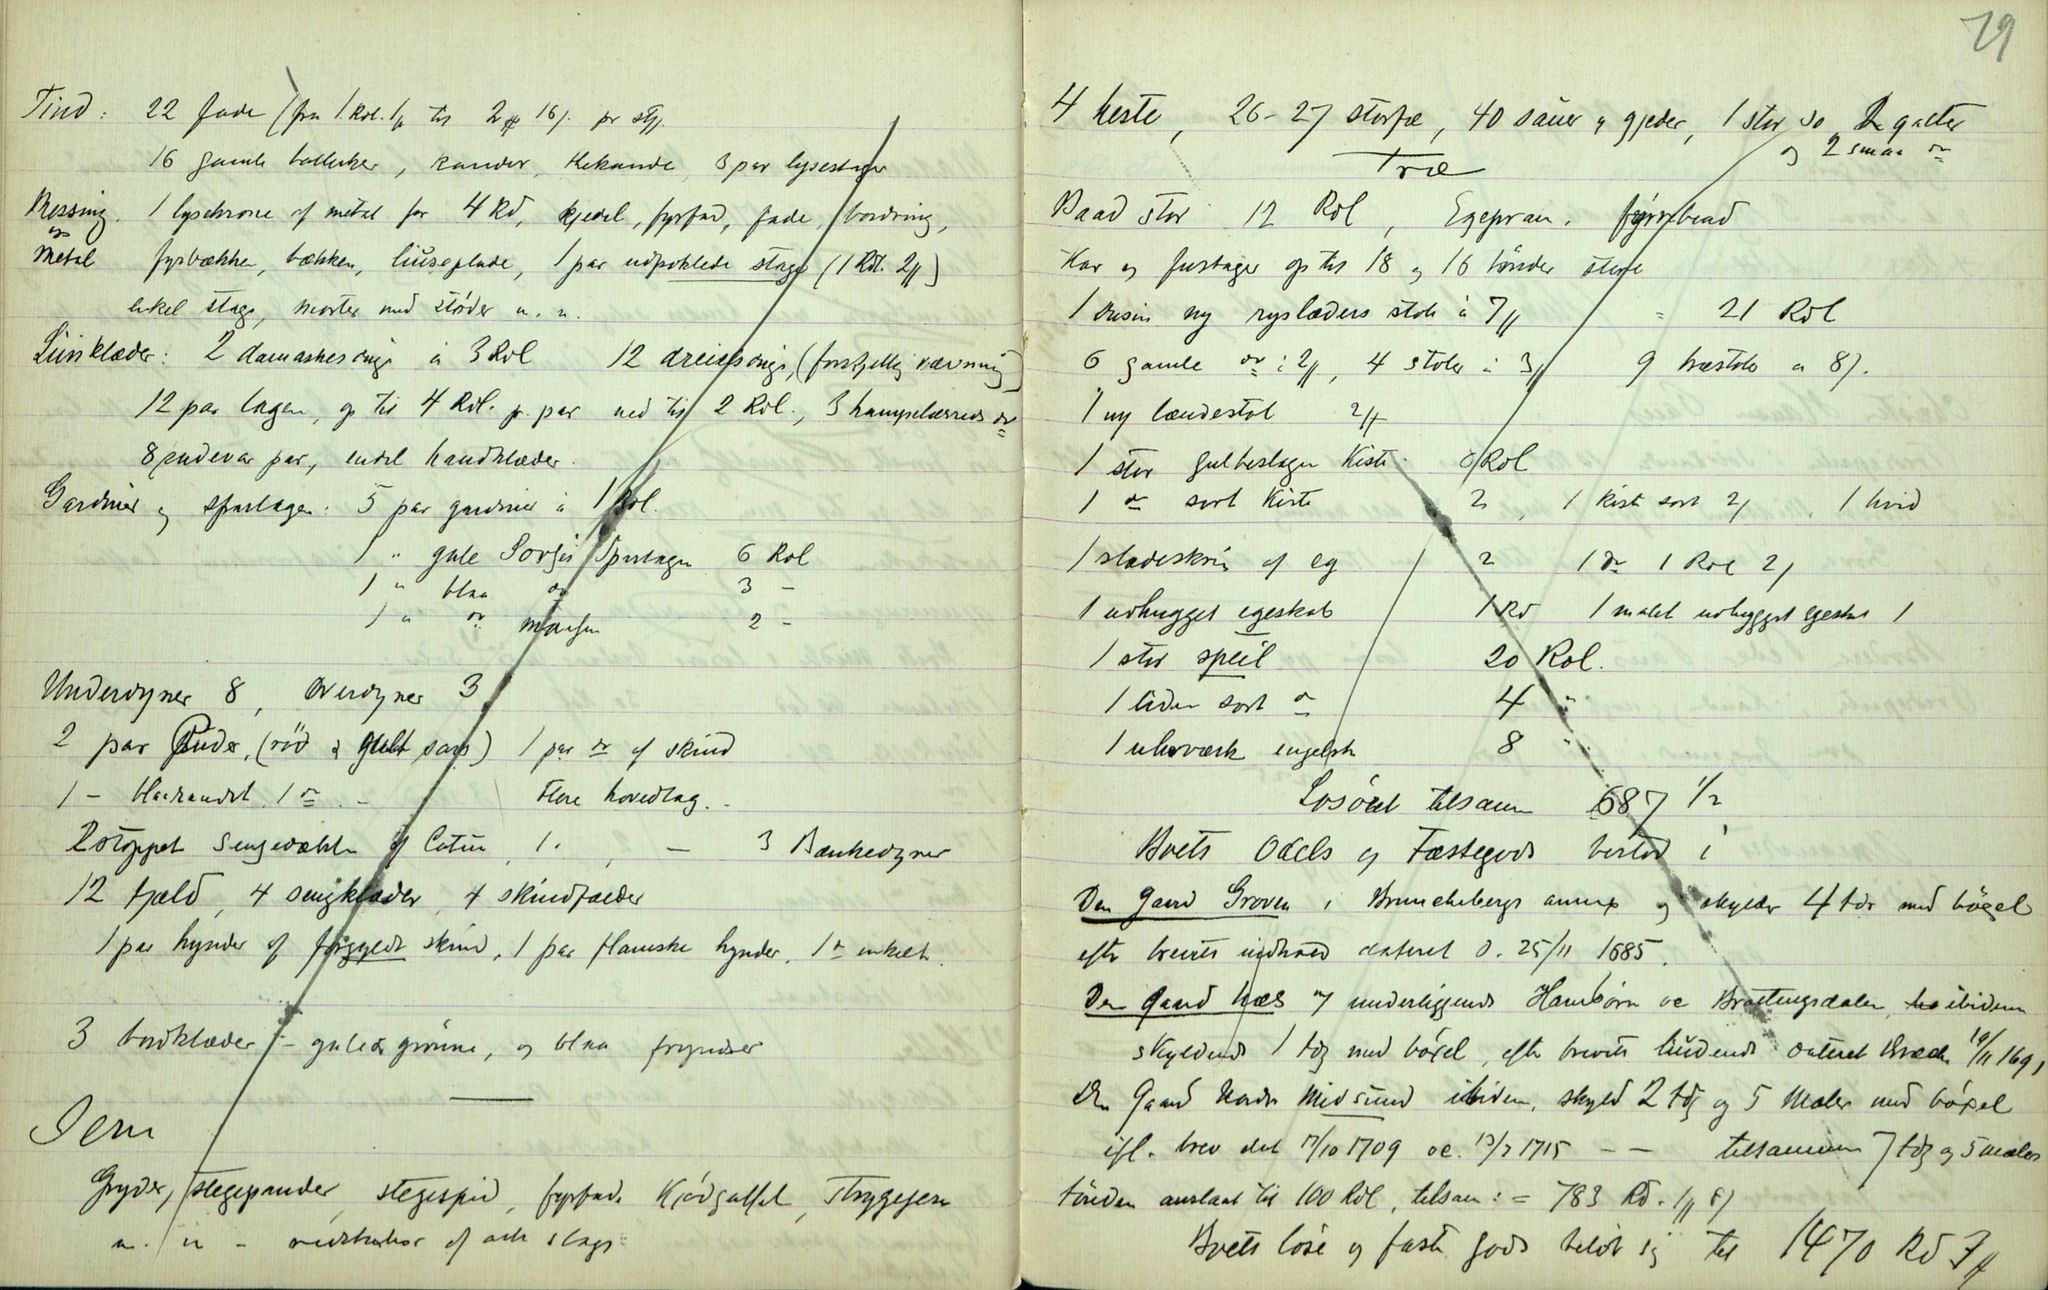 Tind: 22 fade (fra 1 Rdl. 1 til 2 16 pr stk.
16 gamle tallerker, kander, thekande, 3 par lysestager
Messing og Metal
1 lysekrone af metal for 4 Rd, kjedel, fyrfad, fade, bordring,
fyrbækken, bækken, liuseplade, 1 par udpuklede stager (1 Rdl. 2)
enkel stage, morter med støder m. m.
Linklæder: 2 damaskesduge à 3 Rdl 12 dreielsduge, (forskjellig vævning)
12 par lagen, op til 4 Rdl. pr. par ned til 2 Rdl., 3 hampelærreds do
8 pudevar par, endel handklæder.
Gardiner og sparlagen: 5 par gardiner à 1 Rdl.
1 " gule Sarges Sparlagen 6 Rdl
1 " blaa do 3 -
1 " do 2 -
Underdyner 8, overdyner 3
2 par Puder, (rød & gult sars) 1 par do af skind
1 - blaarandet 1 do - Flere hovedlag. -
2 stoppet Sengedækken af Catun, 1 " , — 3 Bænkedyner
12 fjeld, 4 sengklæder, 4 skindfælder
1 par hynder af forgyldt skind, 1 par flamske hynder, 1 do enkelt.
3 bordklæder - gule og grønne, og blaa fryndser
Jern
Gryder, stegepander, stegespid, fyrfade Kjødgaffel, strygejern
m. m - redskaber af alle slags
79
4 heste, 26-27 storfæ, 40 sauer & gjeder, 1 stor so, 2 galter
og 2 smaa do
Træ
Baad stor 12 Rdl, Egepram, førrebaad
Kar og fustager op til 18 og 16 tønder store
1 dusin ny ryslæders stole à 7 = 21 Rdl
6 gamle do à 2, 4 stole à 3 9 træstole à 8.
1 ny lænestol 2
1 stor gulbeslagen Kiste Rdl
1 do sort Kiste 2, 1 kiste sort 2, 1 hvid
1 sladeskrin af eg 2 1 do 1 Rdl 2
1 udhugget egeskab 1 Rd 1 malet udhugget egeskab 1
1 stor speil 20 Rdl.
1 liden sort do 4 "
1 uhrværk engelsk 8 "
Løsøret tilsam 687 1/2
Boets Odels og Fæstegods bestod i
Den gaard Groven i Brunchebergs annex og skylder 4 tdr med bøgsel
efter brevets indhold dateret d. 25/11 1685.
Den gaard Næs m/ underliggende Hambørn oc Brattingsdalen, ibidem
skyldende 1 tdg med bøxel, efter brevets liudende dateret 19/11 1691
Den Gaard Nordr Midsund ibidem, skyld 2 tdg og 5 Meler med bøxel
ifl. brev det 17/10 1709 oc. 13/7 1715 — — tilsammen 7 tdg og 5 meler
tønden anslaat til 100 Rdl, tilsam: = 783 Rd. 1 8
Boets løse og faste gods beløb sig til 1470 Rd 3